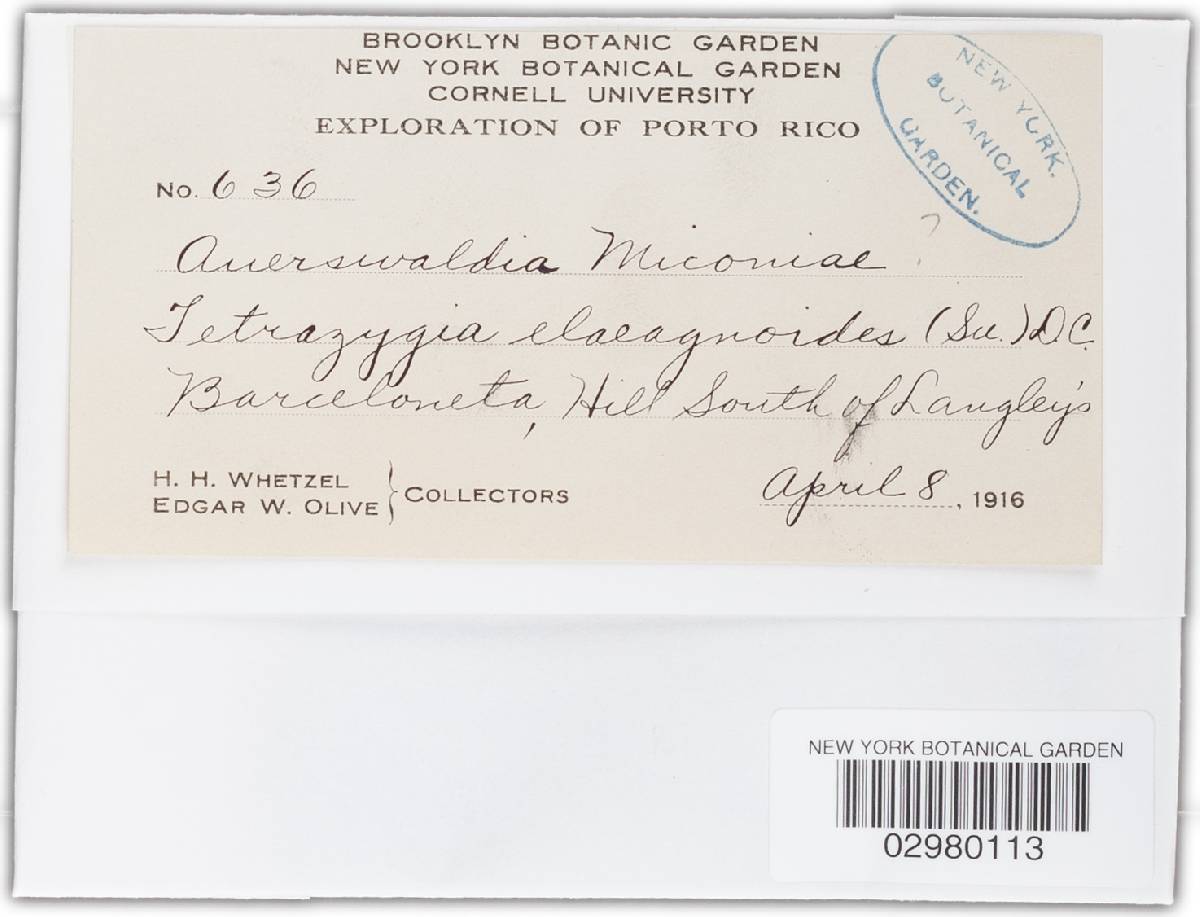 BROOKLYN BOTANIC GARDEN
NEW YORK BOTANICAL GARDEN
CORNELL UNIVERSITY
EXPLORATION OF PORTO RICO
NEW YORK
BOTANICAL
GARDEN.
No. 636
Auerswaldia Miconiae ?
Tetrazygia elaeagnoides (Sw.) DC.
Barceloneta, Hill South of Langley's
H. H. WHETZEL
EDGAR W. OLIVE } COLLECTORS
April 8, 1916
NEW YORK BOTANICAL GARDEN
02980113